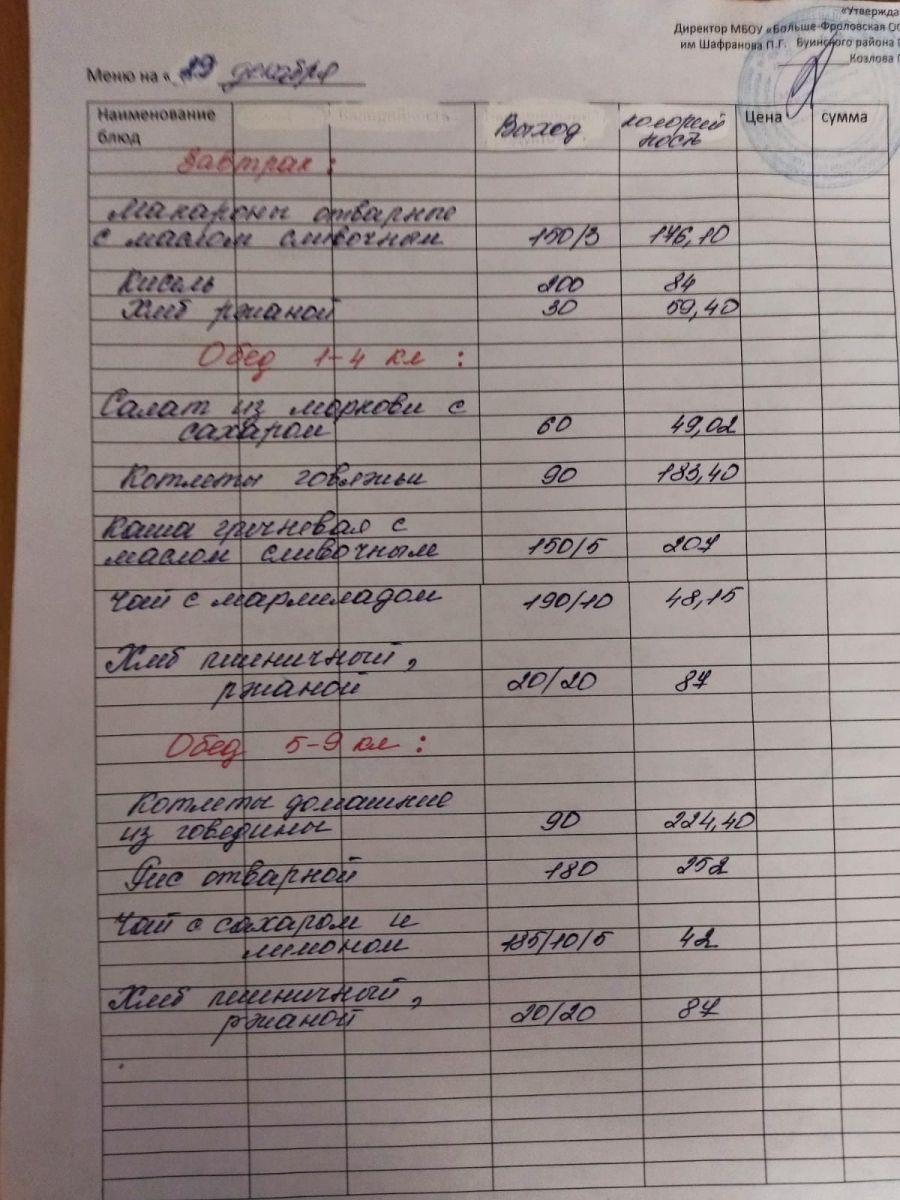 «Утвержда
Директор МБОУ «Больше-Фроловская ОС
им Шафранова П.Г. Буинского района Р
Козлова Г
Меню на « 29 декабря
Наименование блюд Выход колорийность Цена сумма
Завтрак :
Макароны отварные
с маслом сливочным 150/3 176,10
Кисель 200 84
Хлеб ржаной 30 59,40
Обед 1-4 кл :
Салат из моркови с
сахаром 60 49,02
Котлеты говяжьи 90 183,40
Каша гречневая с
маслом сливочным 150/5 207
Чай с мармиладом 190/10 48,15
Хлеб пшеничный,
ржаной 20/20 87
Обед 5-9 кл :
Котлеты домашние
из говедины 90 224,40
Рис отварной 180 252
Чай с сахаром и
лимоном 185/10/5 42
Хлеб пшеничный,
ржаной 20/20 87